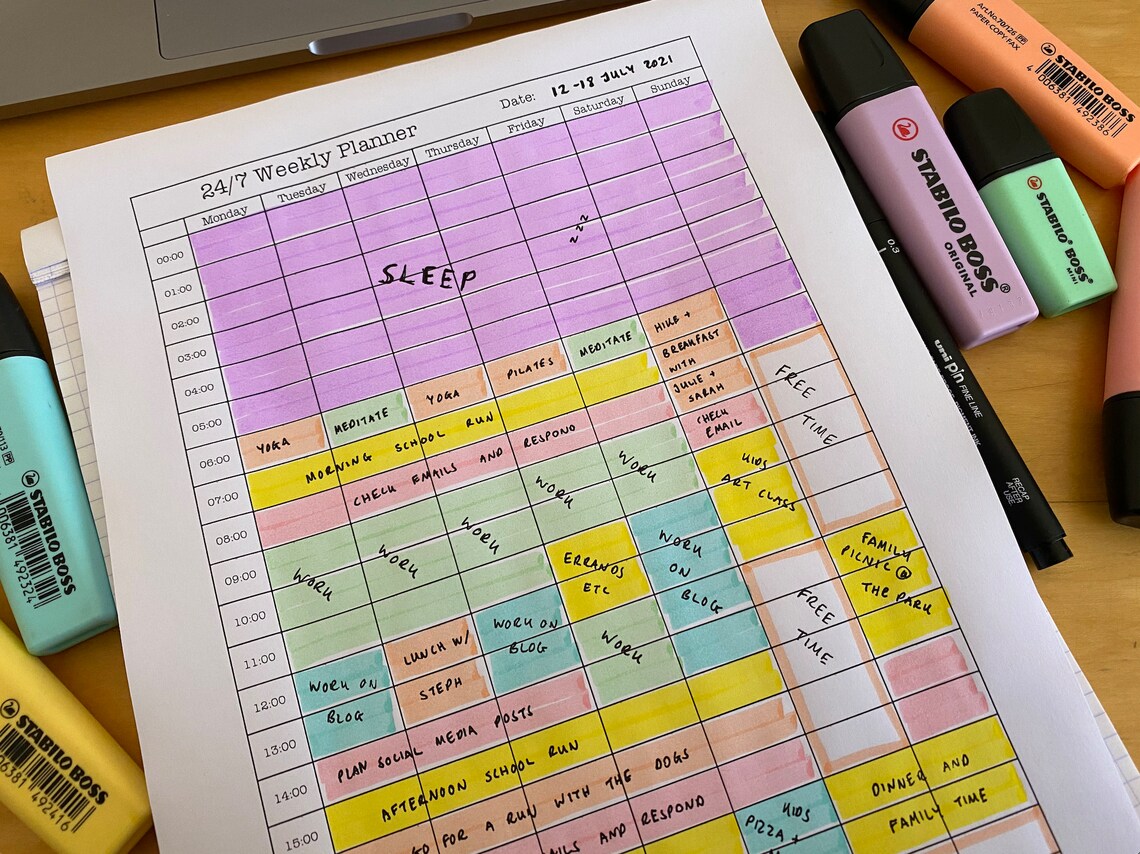 Date: 12-18 JULY 2021
24/7 Weekly Planner
Monday Tuesday Wednesday Thursday Friday Saturday Sunday
00:00
01:00
02:00
03:00
04:00
05:00
06:00
07:00
08:00
09:00
10:00
11:00
12:00
13:00
14:00
15:00
SLEEP
zzz
YOGA
MEDITATE
YOGA
PILATES
MEDITATE
HIKE +
BREAKFAST
WITH
JULIE +
SARAH
CHECK
EMAIL
FREE
TIME
MORNING SCHOOL RUN
CHECK EMAILS AND RESPOND
WORK
WORK
WORK
WORK
WORK
KIDS
ART CLASS
ERRANDS
ETC
WORK
ON
BLOG
FREE
TIME
FAMILY
PICNIC @
THE PARK
WORK ON
BLOG
LUNCH W/
STEPH
WORK ON
BLOG
WORK
PLAN SOCIAL MEDIA POSTS
AFTERNOON SCHOOL RUN
GO FOR A RUN WITH THE DOGS
AILS AND RESPOND
KIDS
PIZZA +
DINNER AND
FAMILY TIME
STABILO BOSS
ORIGINAL
STABILO BOSS
MINI
Art.No.70/126
PAPER·COPY·FAX
STABILO BOSS
4 006381 492386
0.3
uni pin FINE LINE
RECAP
AFTER
USE
STABILO BOSS
006381 492324
STABILO BOSS
06381 492416